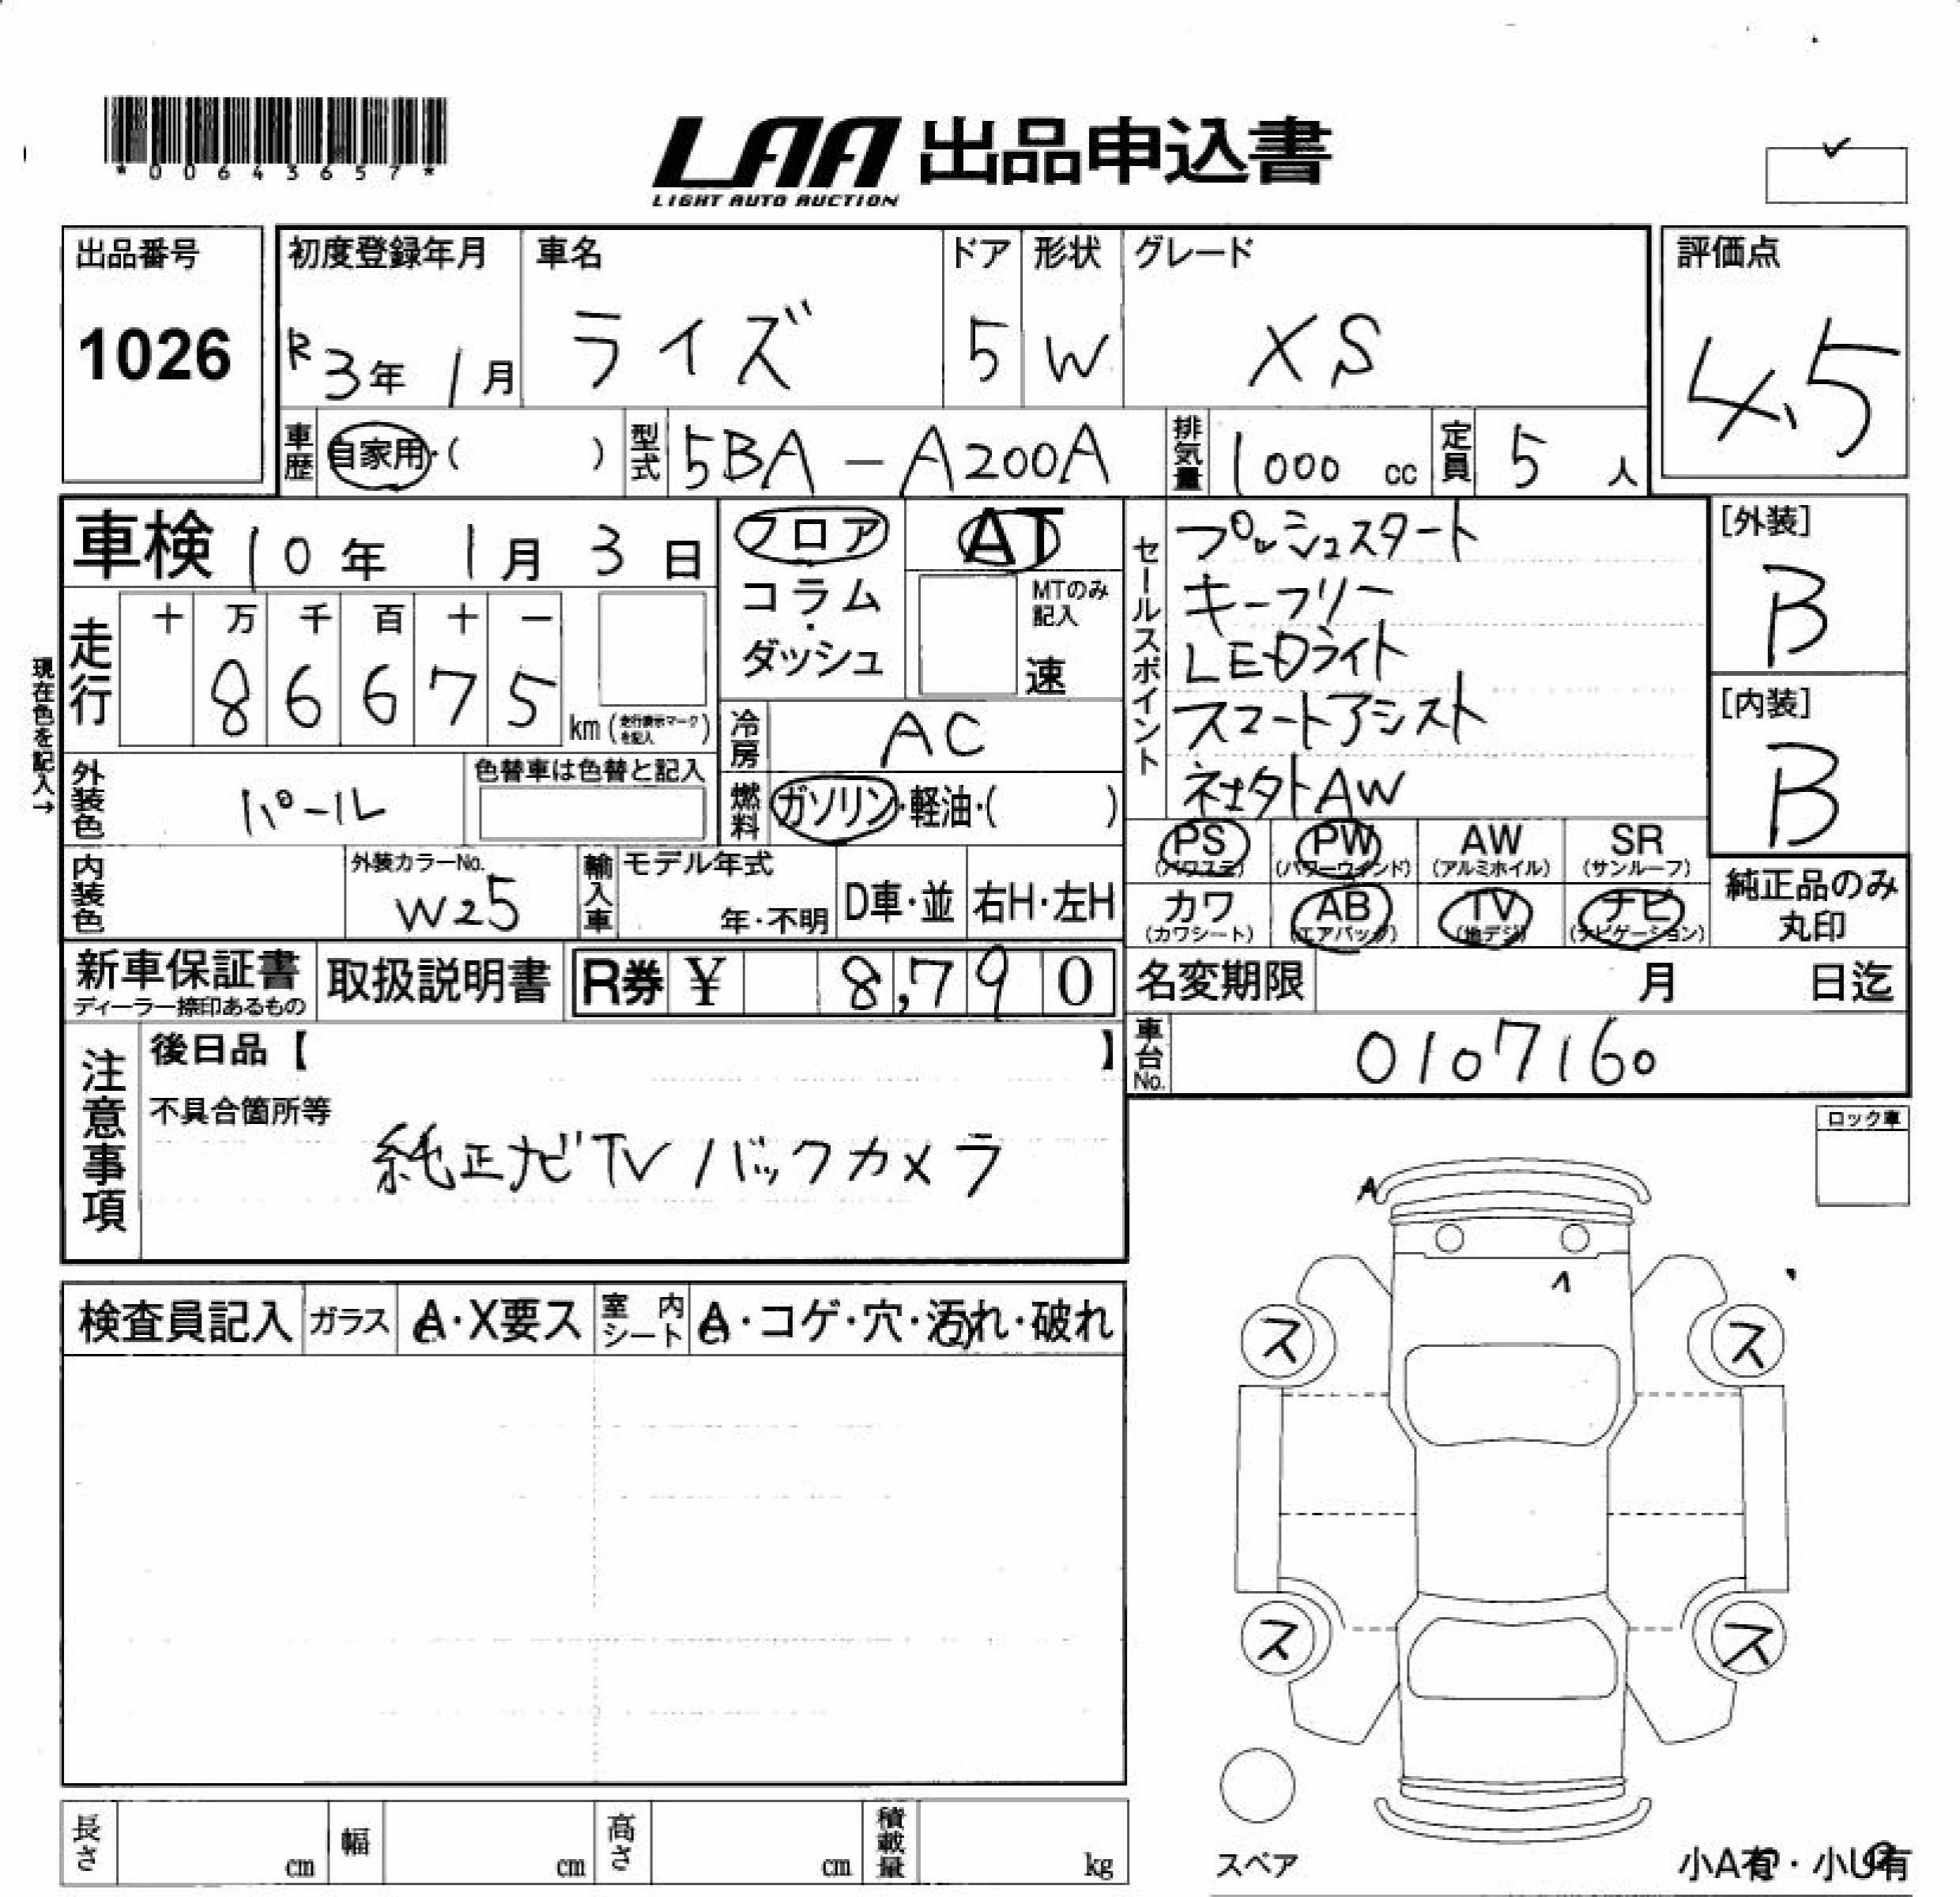 *00643657*
LAA 出品申込書
LIGHT AUTO AUCTION
出品番号 1026
初度登録年月 R3年1月
車名 ライズ
ドア 5
形状 W
グレード XS
評価点 4.5
車歴 自家用・( )
型式 5BA-A200A
排気量 1000 cc
定員 5 人
車検 10年1月3日
フロア
コラム
・
ダッシュ
AT
MTのみ記入
速
現在色を記入→
走行 十 万 千 百 十 一
86675
km (走行表示マークを記入)
冷房 AC
外装色 パール
色替車は色替と記入
燃料 ガソリン・軽油・( )
内装色
外装カラーNo. W25
輸入車 モデル年式 年・不明
D車・並
右H・左H
セールスポイント
プッシュスタート
キーフリー
LEDライト
スマートアシスト
社外AW
[外装] B
[内装] B
PS (パワステ) PW (パワーウインド) AW (アルミホイル) SR (サンルーフ)
カワ (カワシート) AB (エアバッグ) TV (地デジ) ナビ (ナビゲーション)
純正品のみ丸印
新車保証書
ディーラー捺印あるもの
取扱説明書
R券 ¥ 8,790
名変期限 月 日迄
車台No. 0107160
注意事項
後日品【 】
不具合箇所等
純正ナビTV バックカメラ
ロック車
検査員記入 ガラス A・X要ス 室内シート A・コゲ・穴・汚れ・破れ
A
ス ス
ス ス
スペア
小A有・小U有
長さ cm 幅 cm 高さ cm 積載量 kg